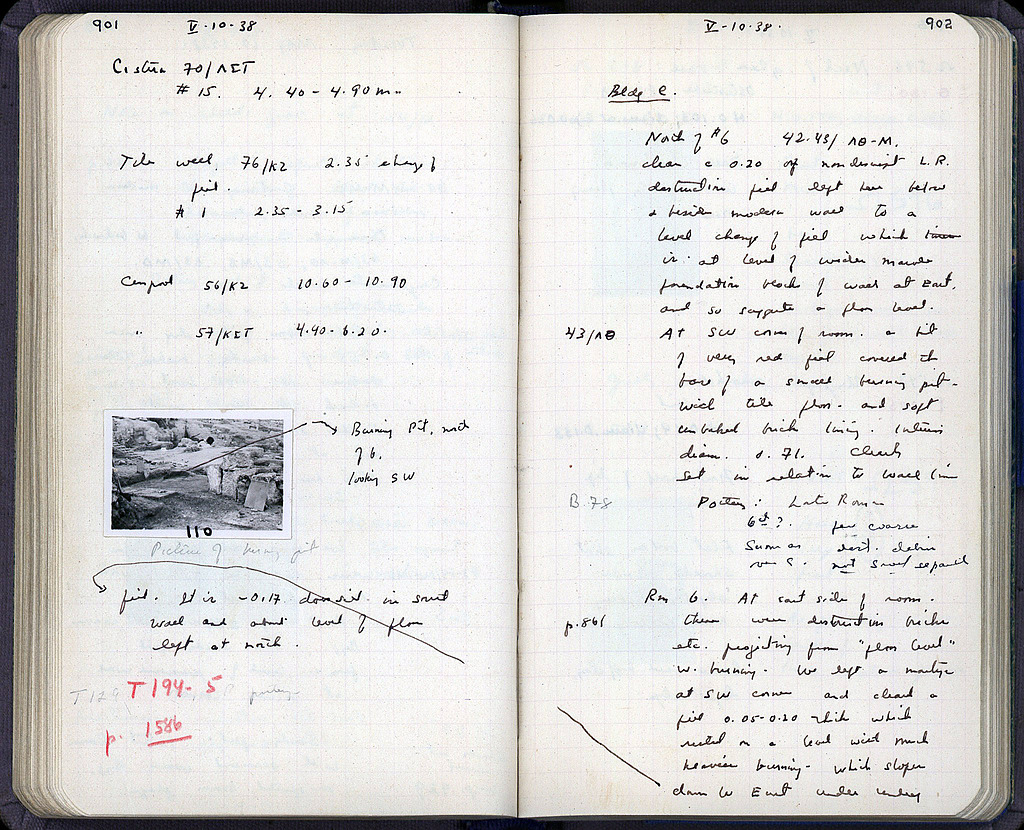 901 V·10·38
Cistern 70/ΛΣΤ
# 15. 4.40 - 4.90 m.
Tile well. 76/ΚΖ 2.35 change of
fill.
# 1 2.35 - 3.15
Cesspool 56/ΚΖ 10.60 - 10.90
" 57/ΚΣΤ 4.40 - 6.20.
Burning Pit, north
of 6.
looking SW
110
Picture of burning pit
fill. It is -0.17 down in south
wall and about level of floor
left at north.
T 194-5
p. 1586
V-10-38. 902
Bldg C.
North of #6 42.43/ΛΘ-Μ.
clear c 0.20 of nondescript L.R.
destruction fill left here below
& beside modern wall to a
level change of fill which
is at level of wider marble
foundation block of wall at East,
and so suggests a floor level.
43/ΛΘ At SW corner of room. a bit
of very red fill covered the
base of a small burning pit-
with tile floor. and soft
unbaked brick lining. Interior
diam. 0.71. Clearly
set in relation to wall line
B.78 Pottery: Late Roman
6th?. few coarse
Same as dest. debris
over C. not saved separately
Rm 6. At east side of room.
p.861 there were destruction bricks
etc. projecting from "floor level"
w. burning. We left a martyr
at SW corner and cleared a
fill 0.05-0.20 thick which
rested on a level with much
heavier burning. which slopes
down to East under